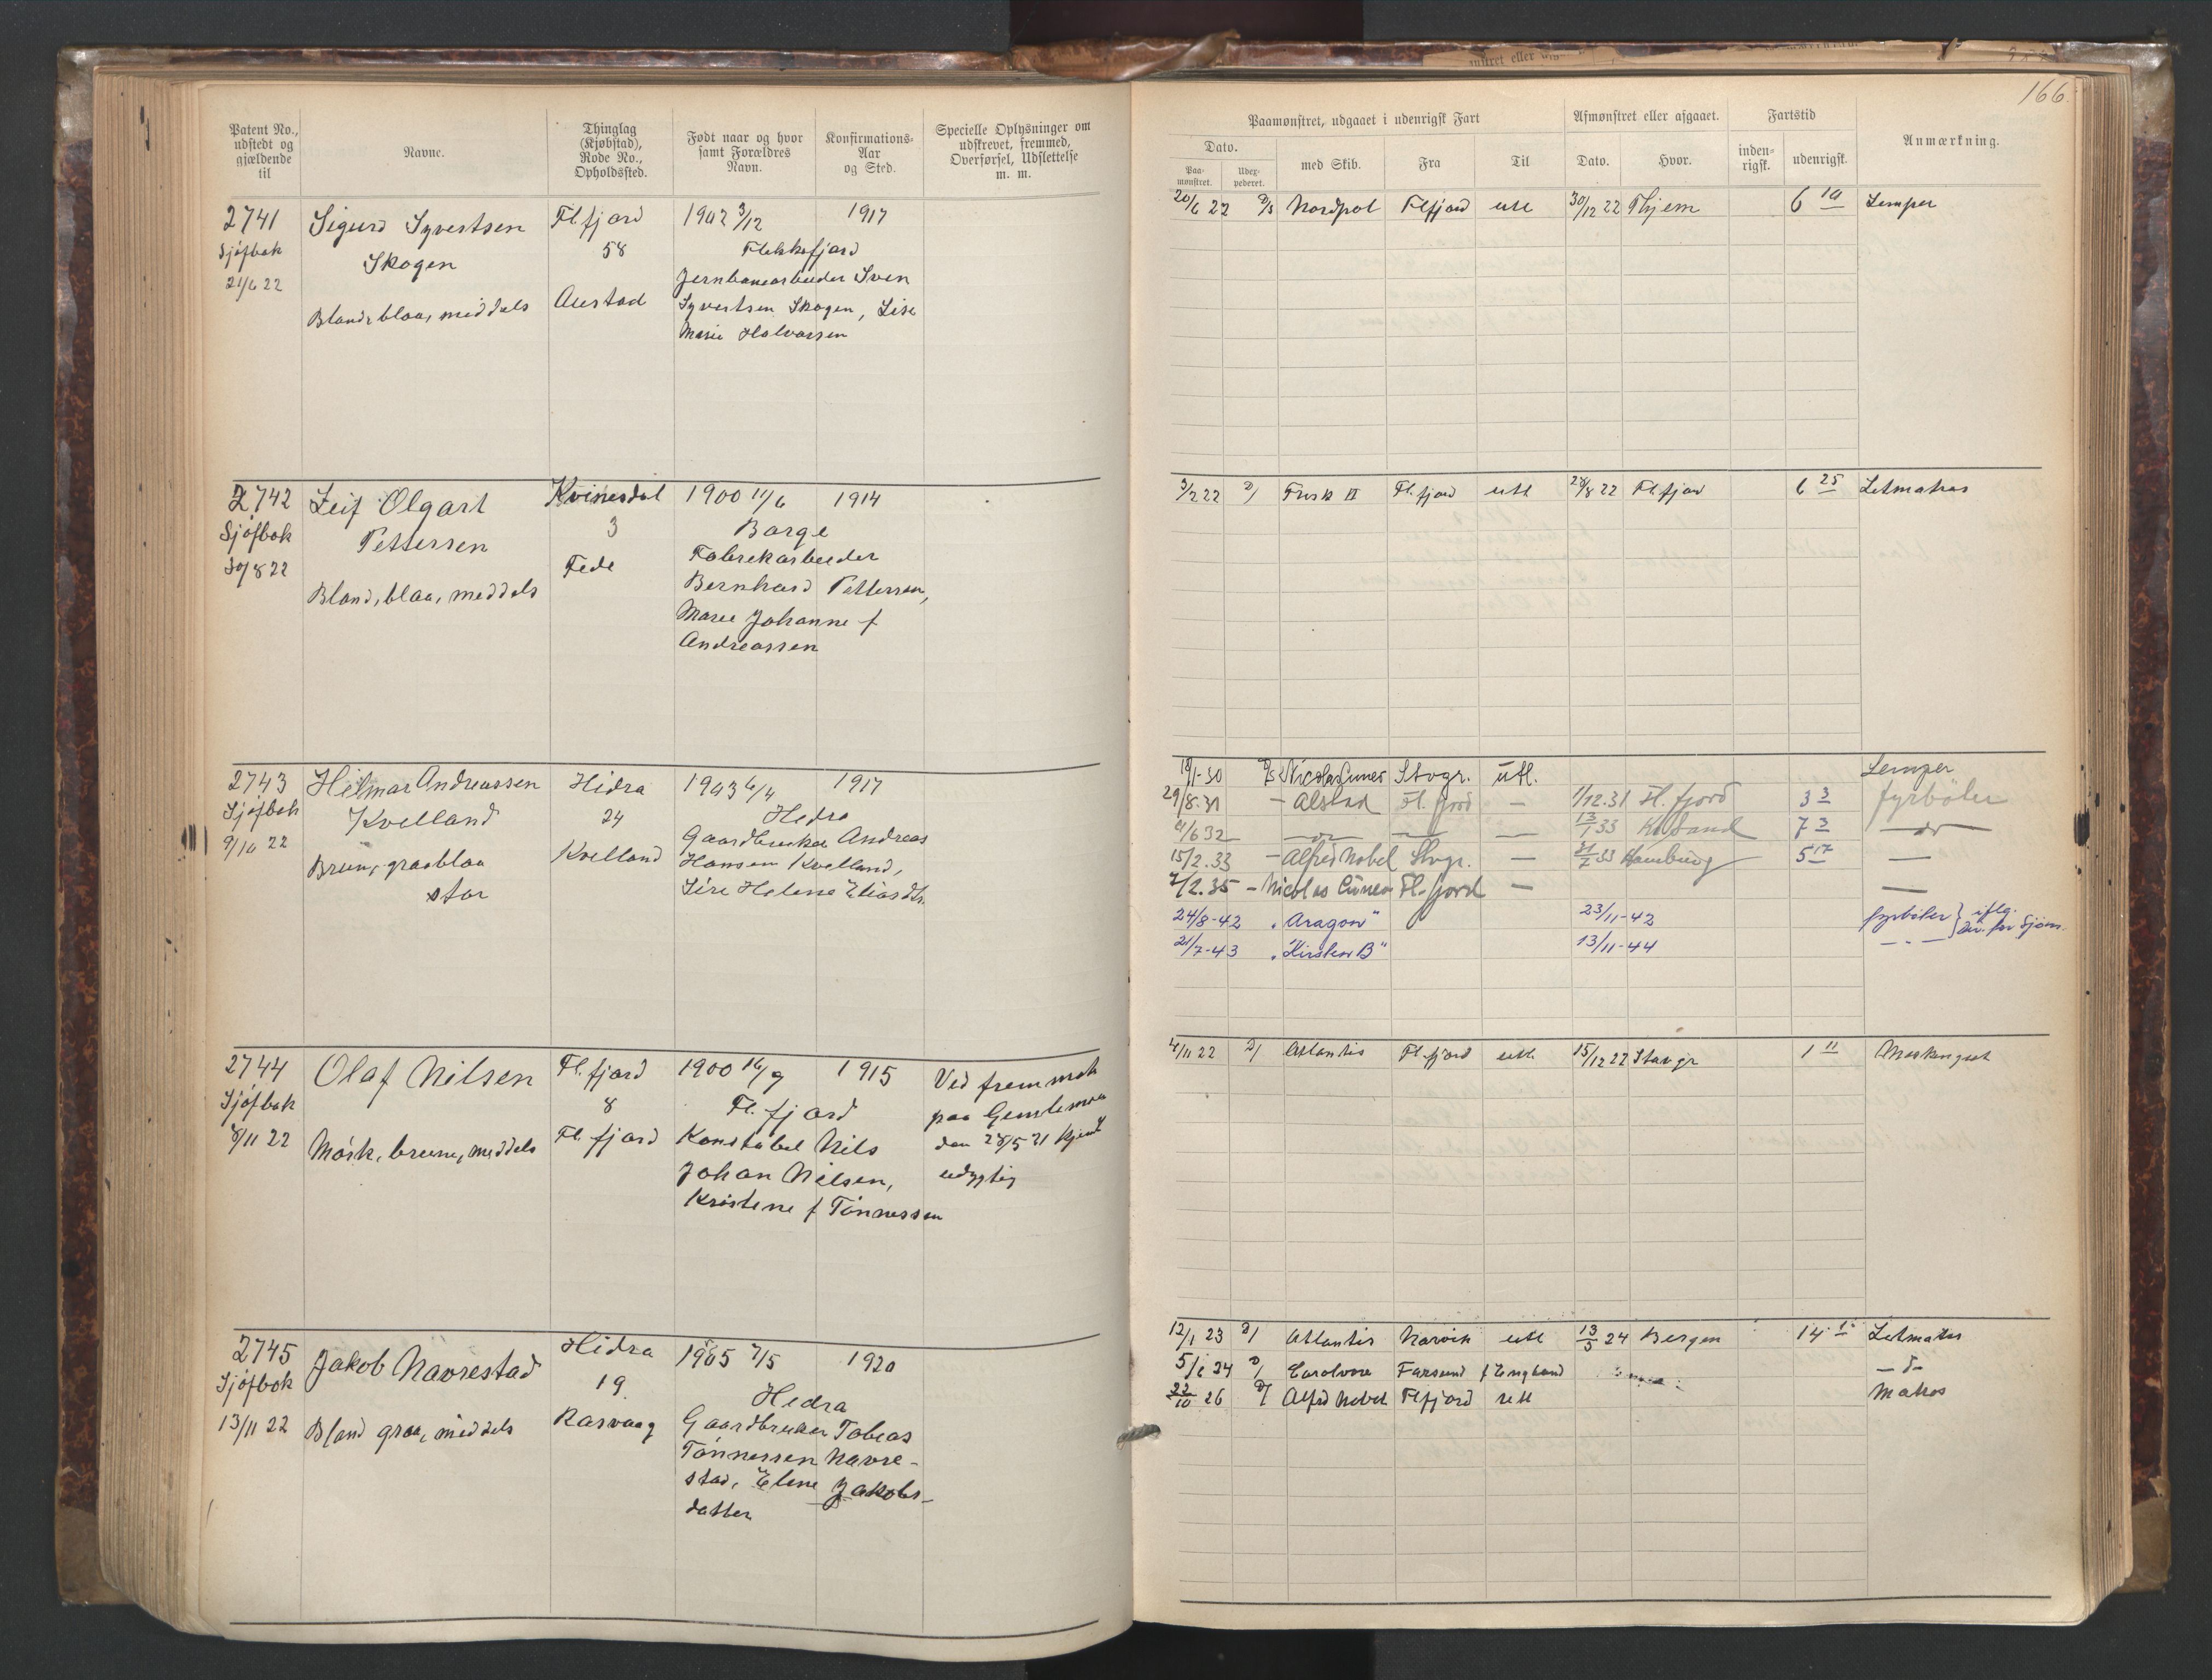 166
Patent No., udstedt og gjældende til
Navne.
Thinglag (Kjøbstad), Rode No., Opholdssted.
Født naar og hvor samt Forældres Navn.
Konfirmations-Aar og Sted.
Specielle Oplysninger om udskrevet, fremmed, Overførsel, Udslettelse m. m.
Paamønstret, udgaaet i udenrigsk Fart
Afmønstret eller afgaaet.
Fartstid
Anmærkning.
Dato.
Paa-mønstret.
Udex-pederet.
med Skib.
Fra
Til
Dato.
Hvor.
inden-rigsk.
udenrigsk.
2741 Sigurd Syvertsen Fl.fjord 1902 3/12 1917
Sjøfbok Skogen 58 Flekkefjord
21/6 22 Jernbanearbeider Sven
Blond, blaa, middels Austad Syvertsen Skogen, Lise
Marie Halvorsen
20/6 22 D/S Nordpol Flfjord utl 30/12 22 Thjem 6 10 Lemper
2742 Leif Olgart Kvinesdal 1900 11/6 1914
Sjøfbok Pettersen 3 Borge
30/8 22 Fede Fabrekarbeider
Blond, blaa, meddels Bernhard Pettersen,
Marie Johanne f
Andreassen
3/2 22 D/ Frisk II Fl.fjord utl 28/8 22 Fl.fjord 6 25 Letmatros
2743 Hilmar Andreassen Hidra 1903 6/4 1917
Sjøfbok Kvelland 24 Hedra
9/10 22 Gaardbruker Andreas
Brun, graablaa Kvelland Hansen Kvelland,
stor Sire Helene Eliasdtr.
18/1-30 D/S Nicolas Cuneo Stvgr. utl. Lemper
29/8.31 — Alstad Fl.fjord — 1/12.31 Fl.fjord 3 3 fyrbøter
9/6 32 — do — — — 13/1 33 Kr.sand 7 3 — do —
15/2.33 — Alfred Nobel Stvgr. — 31/7 33 Hamburg 5 17 —
7/2.35 — Nicolas Cuneo Fl.fjord — —
24/8-42 "Aragon" 23/11-42 fyrbøter } iflg.
21/7-43 "Kirsten B" 13/11-44 — " — } Dir. for Sjøm.
2744 Olaf Nilsen Fl.fjord 1900 16/9 1915 Ved frem møte
Sjøfbok 8 Fl.fjord paa Gimlemoa
8/11 22 Fl.fjord Konstabel Nils den 28/5 21 kjent
Mørk, brune, meddels Johan Nilsen, udygtig
Kristine f Tønnessen
4/11 22 D/ Atlantis Fl.fjord utl 15/12 22 Stavgr 1 11
2745 Jakob Navrestad Hidra 1905 7/5 1920
Sjøfbok 19 Hedra
13/11 22 Blond graa, middels Rasvaag Gaardbruker Tobias
Tønnessen Navre-
stad, Elene Jakobs-
datter
12/1 23 D/ Atlantis Narvik utl 13/3 24 Bergen 14 1 Letmatros
5/6 24 D/ Farsund f England — d —
22/10 26 D/ Alfred Nobel Flfjord utl Matros